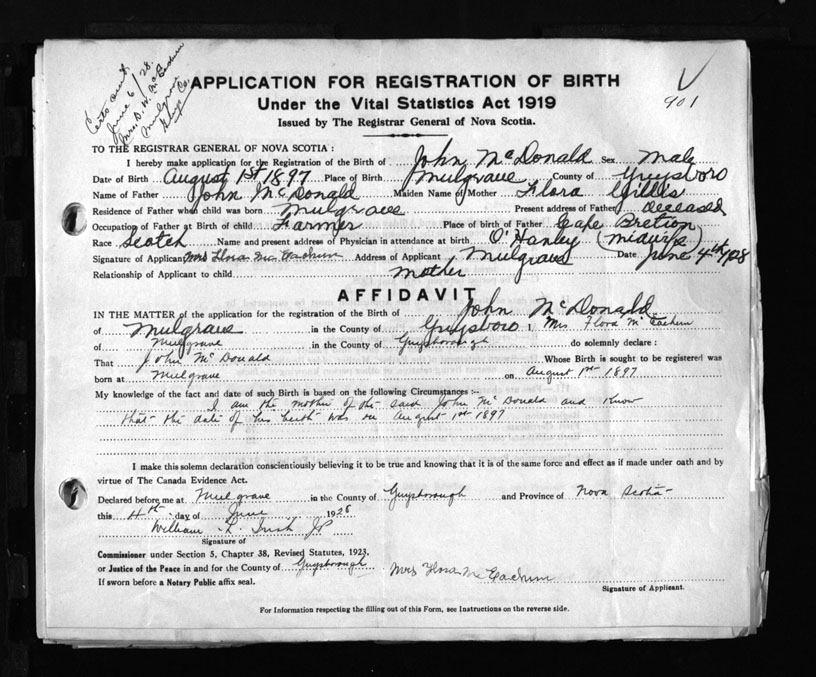 Certs out
June 6/28.
Mrs. D. W. McEachern
Mulgrave
Guys. Co.
APPLICATION FOR REGISTRATION OF BIRTH
901
Under the Vital Statistics Act 1919
Issued by The Registrar General of Nova Scotia.
TO THE REGISTRAR GENERAL OF NOVA SCOTIA:
I hereby make application for the Registration of the Birth of John McDonald Sex Male
Date of Birth August 1st 1897 Place of Birth Mulgrave County of Guysboro
Name of Father John McDonald Maiden Name of Mother Flora Gillis
Residence of Father when child was born Mulgrave Present address of Father deceased
Occupation of Father at Birth of child Farmer Place of birth of Father Cape Bretion
Race Scotch Name and present address of Physician in attendance at birth O'Hanley (midwife)
Signature of Applicant Mrs Flora McEachern Address of Applicant Mulgrave Date June 4th 1928
Relationship of Applicant to child mother
AFFIDAVIT
IN THE MATTER of the application for the registration of the Birth of John McDonald
of Mulgrave in the County of Guysboro I, Mrs. Flora McEachern
of Mulgrave in the County of Guysborough do solemnly declare:
That John McDonald Whose Birth is sought to be registered was
born at Mulgrave on August 1st 1897
My knowledge of the fact and date of such Birth is based on the following Circumstances :—
I am the mother of the said John McDonald and know
that the date of his birth was on August 1st 1897
I make this solemn declaration conscientiously believing it to be true and knowing that it is of the same force and effect as if made under oath and by
virtue of The Canada Evidence Act.
Declared before me at Mulgrave in the County of Guysborough and Province of Nova Scotia
this 4th day of June 1928
William L. Irish JP
Signature of
Commissioner under Section 5, Chapter 38, Revised Statutes, 1923.
or Justice of the Peace in and for the County of Guysborough Mrs Flora McEachern
If sworn before a Notary Public affix seal. Signature of Applicant.
For Information respecting the filling out of this Form, see Instructions on the reverse side.